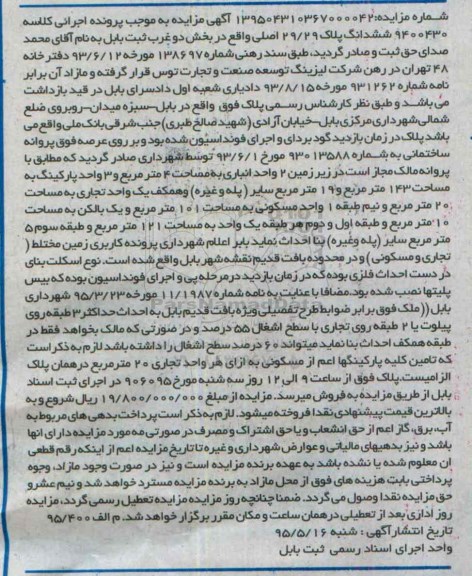 شماره مزایده:۱۳۹۵۰۴۳۱۰۳۶۷۰۰۰۰۴۲ آگهی مزایده به موجب پرونده اجرائی کلاسه
۹۴۰۰۴۳۰ ششدانگ پلاک ۲۹/۲۹ اصلی واقع در بخش دو غرب ثبت بابل به نام آقای محمد
صدای حق ثبت و صادر گردید، طبق سند رهنی شماره ۱۳۸۶۹۷ مورخه ۹۳/۶/۱۲ دفترخانه
۴۸ تهران در رهن شرکت لیزینگ توسعه صنعت و تجارت توس قرار گرفته و مازاد آن برابر
نامه شماره ۹۳۱۲۶۲ مورخه ۹۳/۸/۱۵ دادیاری شعبه اول دادسرای بابل در قید بازداشت
می باشد و طبق نظر کارشناس رسمی پلاک فوق واقع در بابل-سبزه میدان-روبروی ضلع
شمالی شهرداری مرکزی بابل-خیابان آزادی (شهید صالح طبری) جنب شرقی بانک ملی واقع می
باشد پلاک در زمان بازدید گود برداری و اجرای فونداسیون شده بود و بر روی عرصه فوق پروانه
ساختمانی به شماره ۹۳۰۱۳۵۸۸ مورخ ۹۳/۶/۱ توسط شهرداری صادر گردید که مطابق با
پروانه مالک مجاز است در زیر زمین ۲ واحد انباری به مساحت ۴ متر مربع و ۳ واحد پارکینگ به
مساحت ۱۴۳ متر مربع و ۱۹ متر مربع سایر (پله و غیره) و همکف یک واحد تجاری به مساحت
۲۰ متر مربع و نیم طبقه ۱ واحد مسکونی به مساحت ۱۰۱ متر مربع و یک بالکن به مساحت
۱۰ متر مربع و طبقه اول و دوم هر طبقه یک واحد به مساحت ۱۲۱ متر مربع و طبقه سوم ۵
متر مربع سایر (پله وغیره) بنا احداث نماید بابر اعلام شهرداری پرونده کاربری زمین مختلط (
تجاری و مسکونی) و در محدوده بافت قدیم نقشه شهر بابل واقع شده است. نوع اسکلت بنای
در دست احداث فلزی بوده که در زمان بازدید در مرحله پی و اجرای فونداسیون بوده که بیس
پلیتها نصب شده بود.مضافا با عنایت به نامه شماره ۱۱/۱۹۸۷ مورخه ۹۵/۳/۲۳ شهرداری
بابل ((ملک فوق برابر ضوابط طرح تفصیلی ویژه بافت قدیم بابل به احداث حداکثر ۳ طبقه روی
پیلوت یا ۲ طبقه روی تجاری با سطح اشغال ۵۵ درصد و در صورتی که مالک بخواهد فقط در
طبقه همکف احداث بنا نماید میتواند ۶۰ درصد سطح اشغال را داشته باشد لازم به ذکر است
که تامین کلیه پارکینگها اعم از مسکونی به ازای هر واحد تجاری ۲۰ مترمربع در همان پلاک
الزامیست.پلاک فوق از ساعت ۹ الی ۱۲ روز سه شنبه مورخ ۹۰۶۰۹۵ در اجرای ثبت اسناد
بابل از طریق مزایده به فروش میرسد. مزایده از مبلغ ۱۹/۸۰۰/۰۰۰/۰۰۰ ریال شروع و به
بالاترین قیمت پیشنهادی نقدا فروخته میشود. لازم به ذکر است پرداخت بدهی های مربوط به
آب، برق، گاز اعم از حق انشعاب و یا حق اشتراک و مصرف در صورتی مه مورد مزایده دارای انها
باشد و نیز بدهیهای مالیاتی و عوارض شهرداری و غیره تا تاریخ مزایده اعم از اینکه رقم قطعی
ان معلوم شده یا نشده باشد به عهده برنده مزایده است و نیز در صورت وجود مازاد، وجوه
پرداختی بابت هزینه های فوق از محل مازاد به برنده مزایده مسترد خواهد شد و نیم عشر و
حق مزایده نقدا وصول می گردد. ضمنا چنانچه روز مزایده تعطیل رسمی گردد، مزایده
روز اداری بعد از تعطیلی در همان ساعت و مکان مقرر برگزار خواهد شد. م الف ۹۵/۴۰۰
تاریخ انتشار آگهی : شنبه ۹۵/۵/۱۶
واحد اجرای اسناد رسمی ثبت بابل